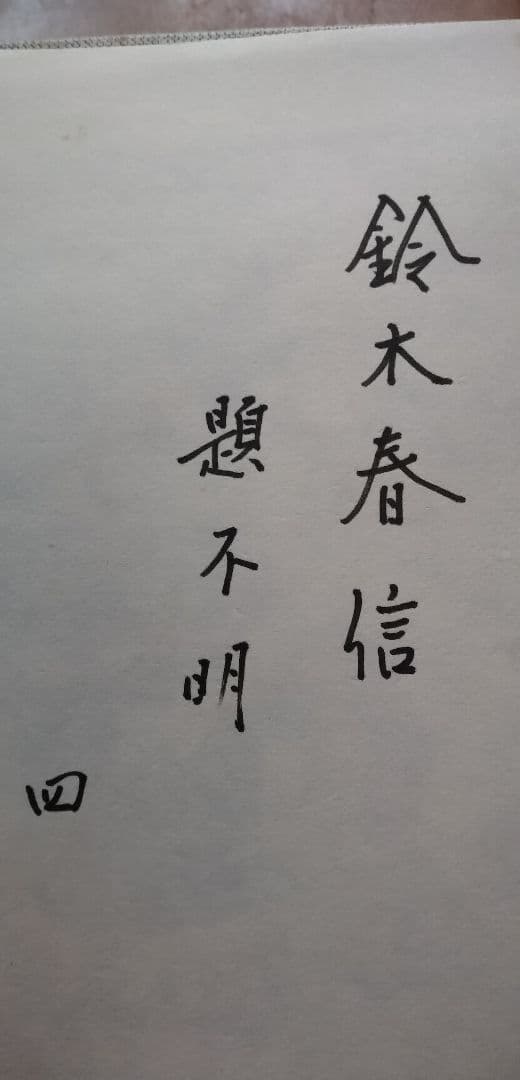 鈴木春信
題不明
四